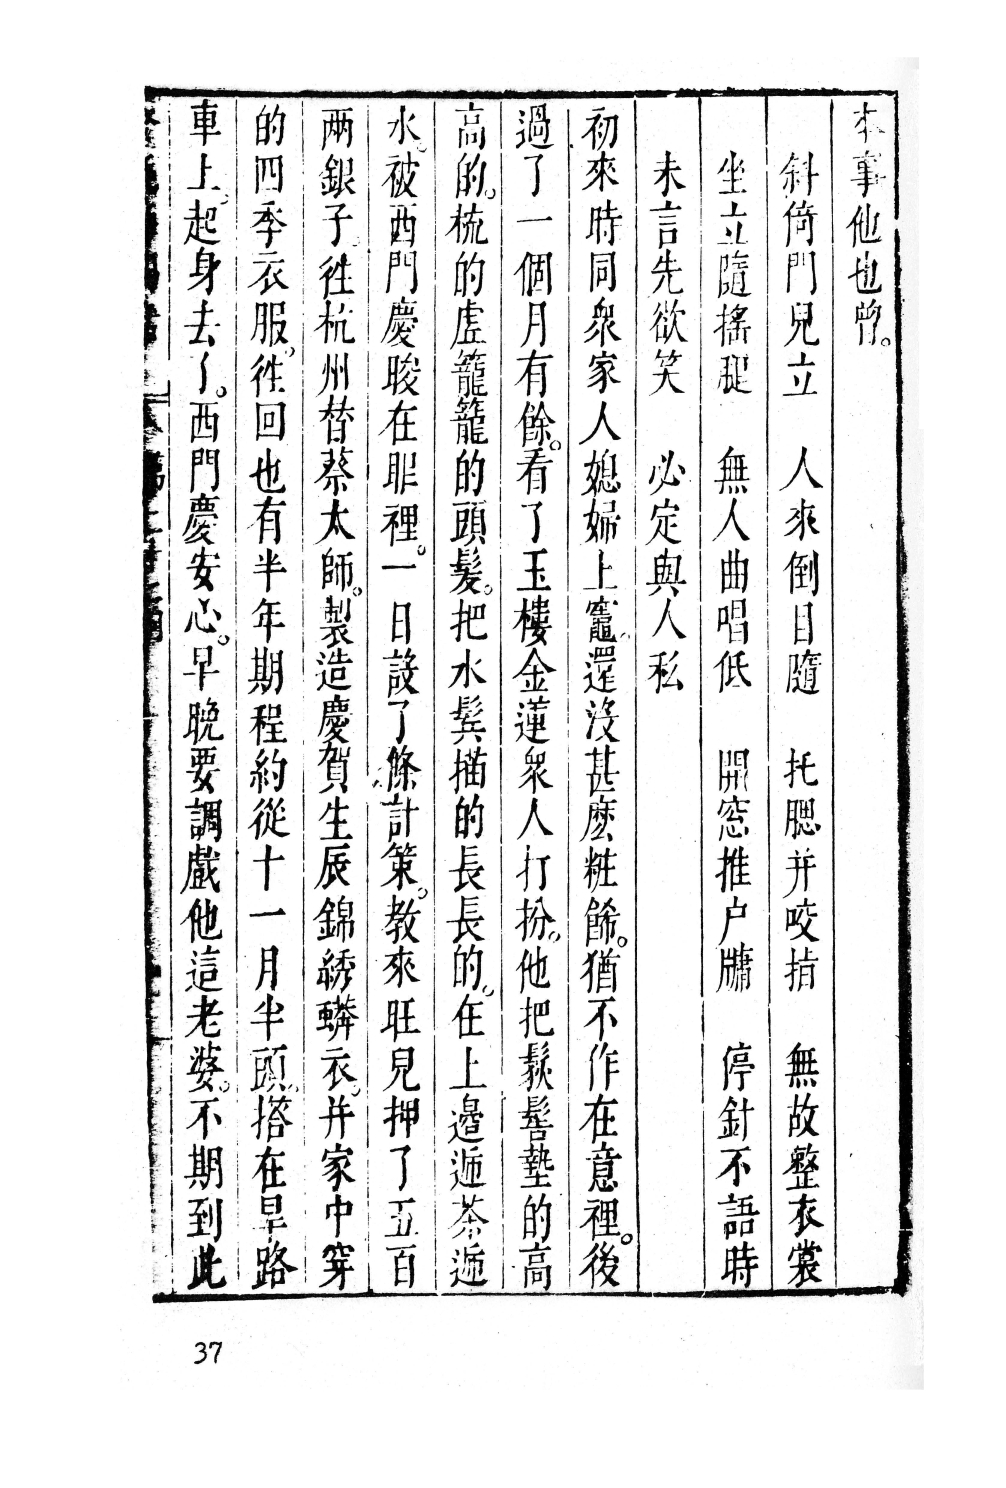 本事他也曾。
斜倚門兒立　人來倒目隨　托腮并咬指　無故整衣裳
坐立隨搖腿　無人曲唱低　開窓推户牖　停針不語時
未言先欲笑　必定與人私
初來時同衆家人媳婦上竈。還没甚麽粧餙。猶不作在意裡。後
過了一個月有餘。看了玉樓金蓮衆人打扮。他把䯼髻墊的高
高的。梳的虚籠籠的頭髮。把水鬂描的長長的。在上邉逓茶逓
水。被西門慶睃在眼裡。一日設了條計策。教來旺兒押了五百
兩銀子。徃杭州替蔡太師。製造慶賀生辰錦綉蟒衣。并家中穿
的四季衣服。徃回也有半年期程。約從十一月半頭。搭在旱路
車上。起身去了。西門慶安心。早晚要調戲他這老婆。不期到此
37